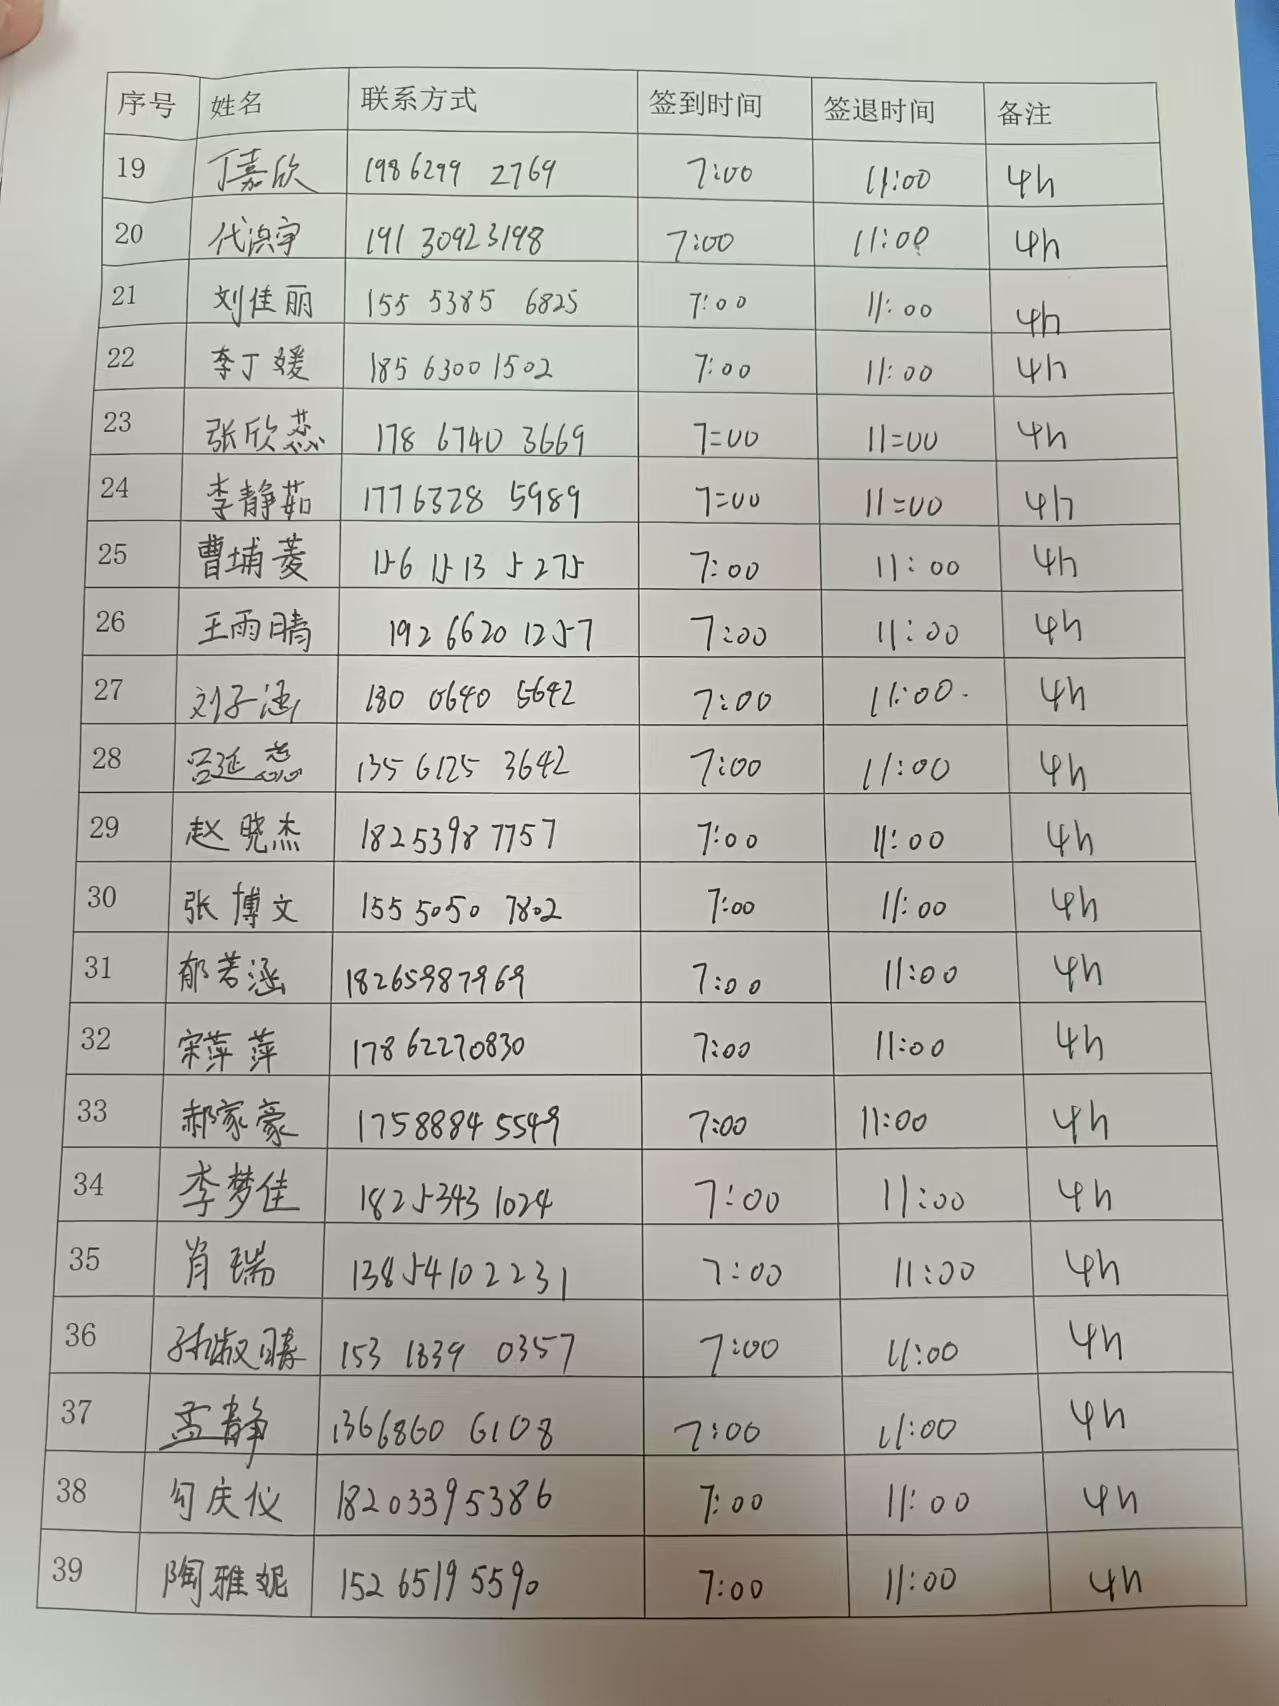 序号 姓名 联系方式 签到时间 签退时间 备注
19 丁嘉欣 198 6299 2769 7:00 11:00 4h
20 代浜宇 191 3092 3198 7:00 11:00 4h
21 刘佳丽 155 5385 6825 7:00 11:00 4h
22 李丁媛 185 6300 1502 7:00 11:00 4h
23 张欣蕊 178 6740 3669 7:00 11:00 4h
24 李静茹 177 6328 5989 7:00 11:00 4h
25 曹埔菱 156 1513 5275 7:00 11:00 4h
26 王雨晴 192 6620 1257 7:00 11:00 4h
27 刘子涵 180 0640 5642 7:00 11:00 4h
28 吕延蕊 135 6125 3642 7:00 11:00 4h
29 赵晓杰 182 5398 7757 7:00 11:00 4h
30 张博文 155 5050 7802 7:00 11:00 4h
31 郁若涵 18265987969 7:00 11:00 4h
32 宋萍萍 178 62270830 7:00 11:00 4h
33 郝家豪 1758884 5549 7:00 11:00 4h
34 李梦佳 182 5343 1024 7:00 11:00 4h
35 肖瑞 13854102231 7:00 11:00 4h
36 孙淑晴 153 1839 0357 7:00 11:00 4h
37 孟静 1366860 6108 7:00 11:00 4h
38 勾庆仪 18203395386 7:00 11:00 4h
39 陶雅妮 152 6519 5590 7:00 11:00 4h